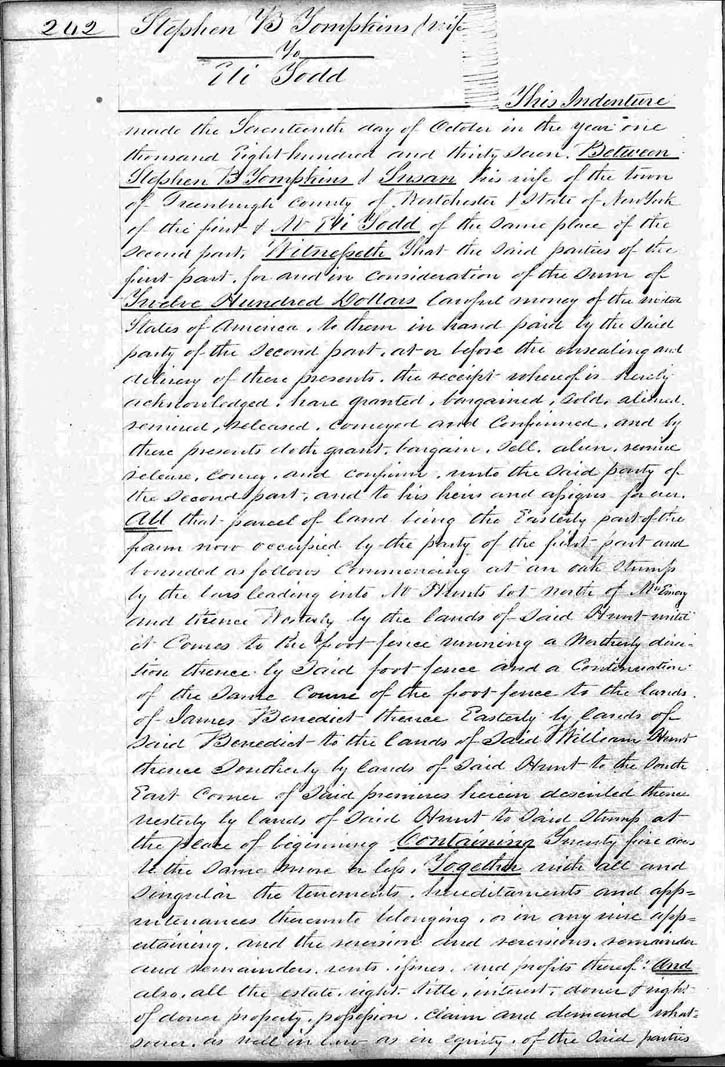 242
Stephen B Tompkins & wife
To
Eli Todd
This Indenture
made the Seventeenth day of October in the year one
thousand Eight hundred and thirty seven. Between
Stephen B Tompkins & Susan his wife of the town
of Greenburgh County of Westchester & State of New York
of the first & Eli Todd of the same place of the
second part, Witnesseth That the said parties of the
first part, for and in consideration of the sum of
Twelve Hundred Dollars lawful money of the united
States of America, to them in hand paid by the said
party of the second part, at or before the ensealing and
delivery of these presents, the receipt whereof is hereby
acknowledged, have granted, bargained, sold, aliened,
remised, released, conveyed and Confirmed, and by
these presents doth grant, bargain, sell, alien, remise
release, convey, and confirm, unto the said party of
the second part, and to his heirs and assigns forever.
All that parcel of land being the Easterly part of the
farm now occupied by the party of the first part and
bounded as follows Commencing at an oak Stump
by the bars leading into Hunts lot north of
and thence Westerly by the lands of Said Hunt until
it Comes to the foot fence running a Northerly direc=
tion thence by Said foot fence and a Continuation
of the Same Course of the foot fence to the lands
of James Benedict thence Easterly by lands of
Said Benedict to the lands of Said William Hunt
thence Southerly by lands of Said Hunt to the South
East Corner of Said premises herein described thence
westerly by lands of Said Hunt to Said Stump at
the place of beginning Containing Twenty five acres
be the same more or less, Together with all and
singular the tenements, hereditaments and app=
urtenances thereunto belonging, or in any wise app=
ertaining, and the reversion and reversions, remainder
and remainders, rents, issues, and profits thereof: And
also, all the estate, right, title, interest, dower & right
of dower property, possession, claim and demand what=
soever, as well in law as in equity, of the said parties